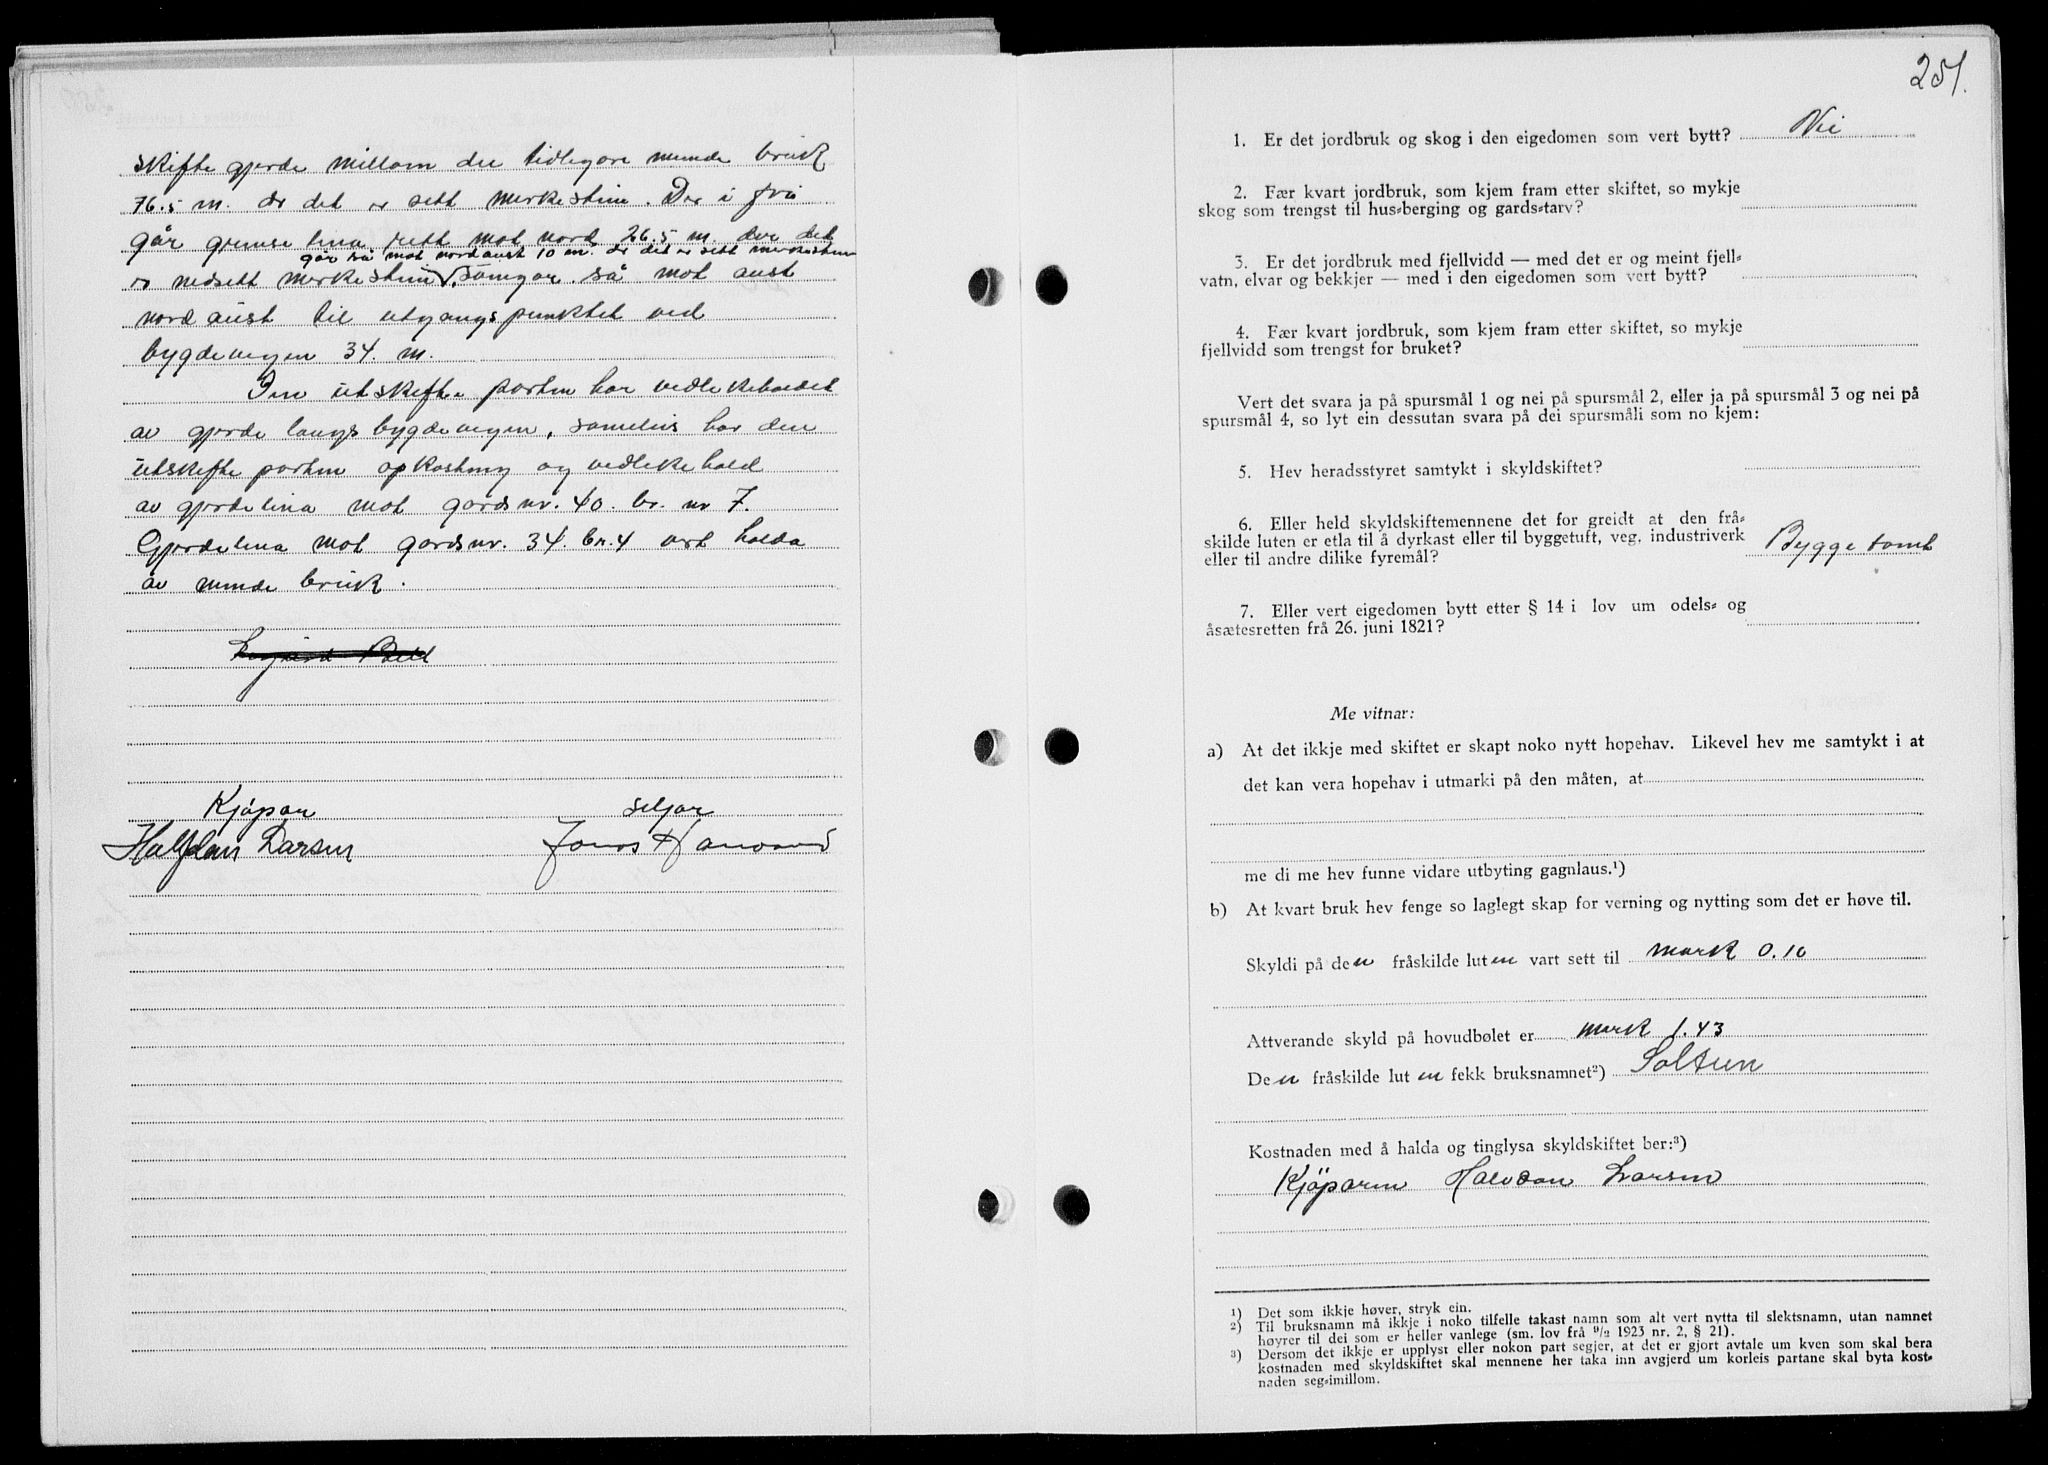 skifte gjerde millom dei tidlegare nemnde bruk
76.5 m. der det er sett merkestein. Der i frå
går grense lina rett mot nord 26.5 m. der det
går så mot nordaust 10 m. der det er sett merkestein
er nedsett merkestein, so mot aust
nordaust til utgangspunktet ved
bygdevegen 34 m.
Den utskifte parten har vedlikehaldet
av gjerde langs bygdevegen, sameleis har den
utskifte parten opkostning og vedlikehald
av gjerdelina mot gardsnr. 40. br. nr 7.
Gjerdelina mot gardsnr. 34. br. 4 vert halda
av nemnde bruk.
Kjøpar seljar
Halfdan Larsen Jonas
251.
1. Er det jordbruk og skog i den eigedomen som vert bytt? Nei
2. Fær kvart jordbruk, som kjem fram etter skiftet, so mykje
skog som trengst til hus-berging og gards-tarv?
3. Er det jordbruk med fjellvidd — med det er og meint fjell-
vatn, elvar og bekkjer — med i den eigedomen som vert bytt?
4. Fær kvart jordbruk, som kjem fram etter skiftet, so mykje
fjellvidd som trengst for bruket?
Vert det svara ja på spursmål 1 og nei på spursmål 2, eller ja på spursmål 3 og nei på
spursmål 4, so lyt ein dessutan svara på dei spursmåli som no kjem:
5. Hev heradsstyret samtykt i skyldskiftet?
6. Eller held skyldskiftemennene det for greidt at den frå-
skilde luten er etla til å dyrkast eller til byggetuft, veg, industriverk
eller til andre dilike fyremål? Byggetomt
7. Eller vert eigedomen bytt etter § 14 i lov um odels- og
åsætesretten frå 26. juni 1821?
Me vitnar:
a) At det ikkje med skiftet er skapt noko nytt hopehav. Likevel hev me samtykt i at
det kan vera hopehav i utmarki på den måten, at
me di me hev funne vidare utbyting gagnlaus.¹)
b) At kvart bruk hev fenge so laglegt skap for verning og nytting som det er høve til.
Skyldi på den fråskilde luten vart sett til mark 0.10
Attverande skyld på hovudbølet er mark 1.43
Den fråskilde luten fekk bruksnamnet²) Soltun
Kostnaden med å halda og tinglysa skyldskiftet ber:³)
Kjøparen Halvdan Larsen
¹) Det som ikkje høver, stryk ein.
²) Til bruksnamn må ikkje i noko tilfelle takast namn som alt vert nytta til slektsnamn, utan namnet
høyrer til dei som er heller vanlege (sm. lov frå 9/2 1923 nr. 2, § 21).
³) Dersom det ikkje er upplyst eller nokon part segjer, at det er gjort avtale um kven som skal bera
kostnaden med skyldskiftet skal mennene her taka inn avgjerd um korleis partane skal byta kost-
naden seg-imillom.